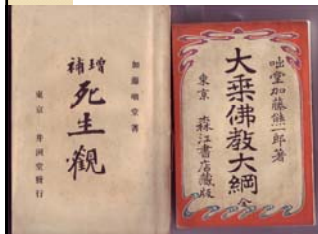 加藤咄堂著
增補
死生觀
東京 井洌堂發行
咄堂加藤熊一郎著
大乘佛教大綱 全
東京 森江書店藏版